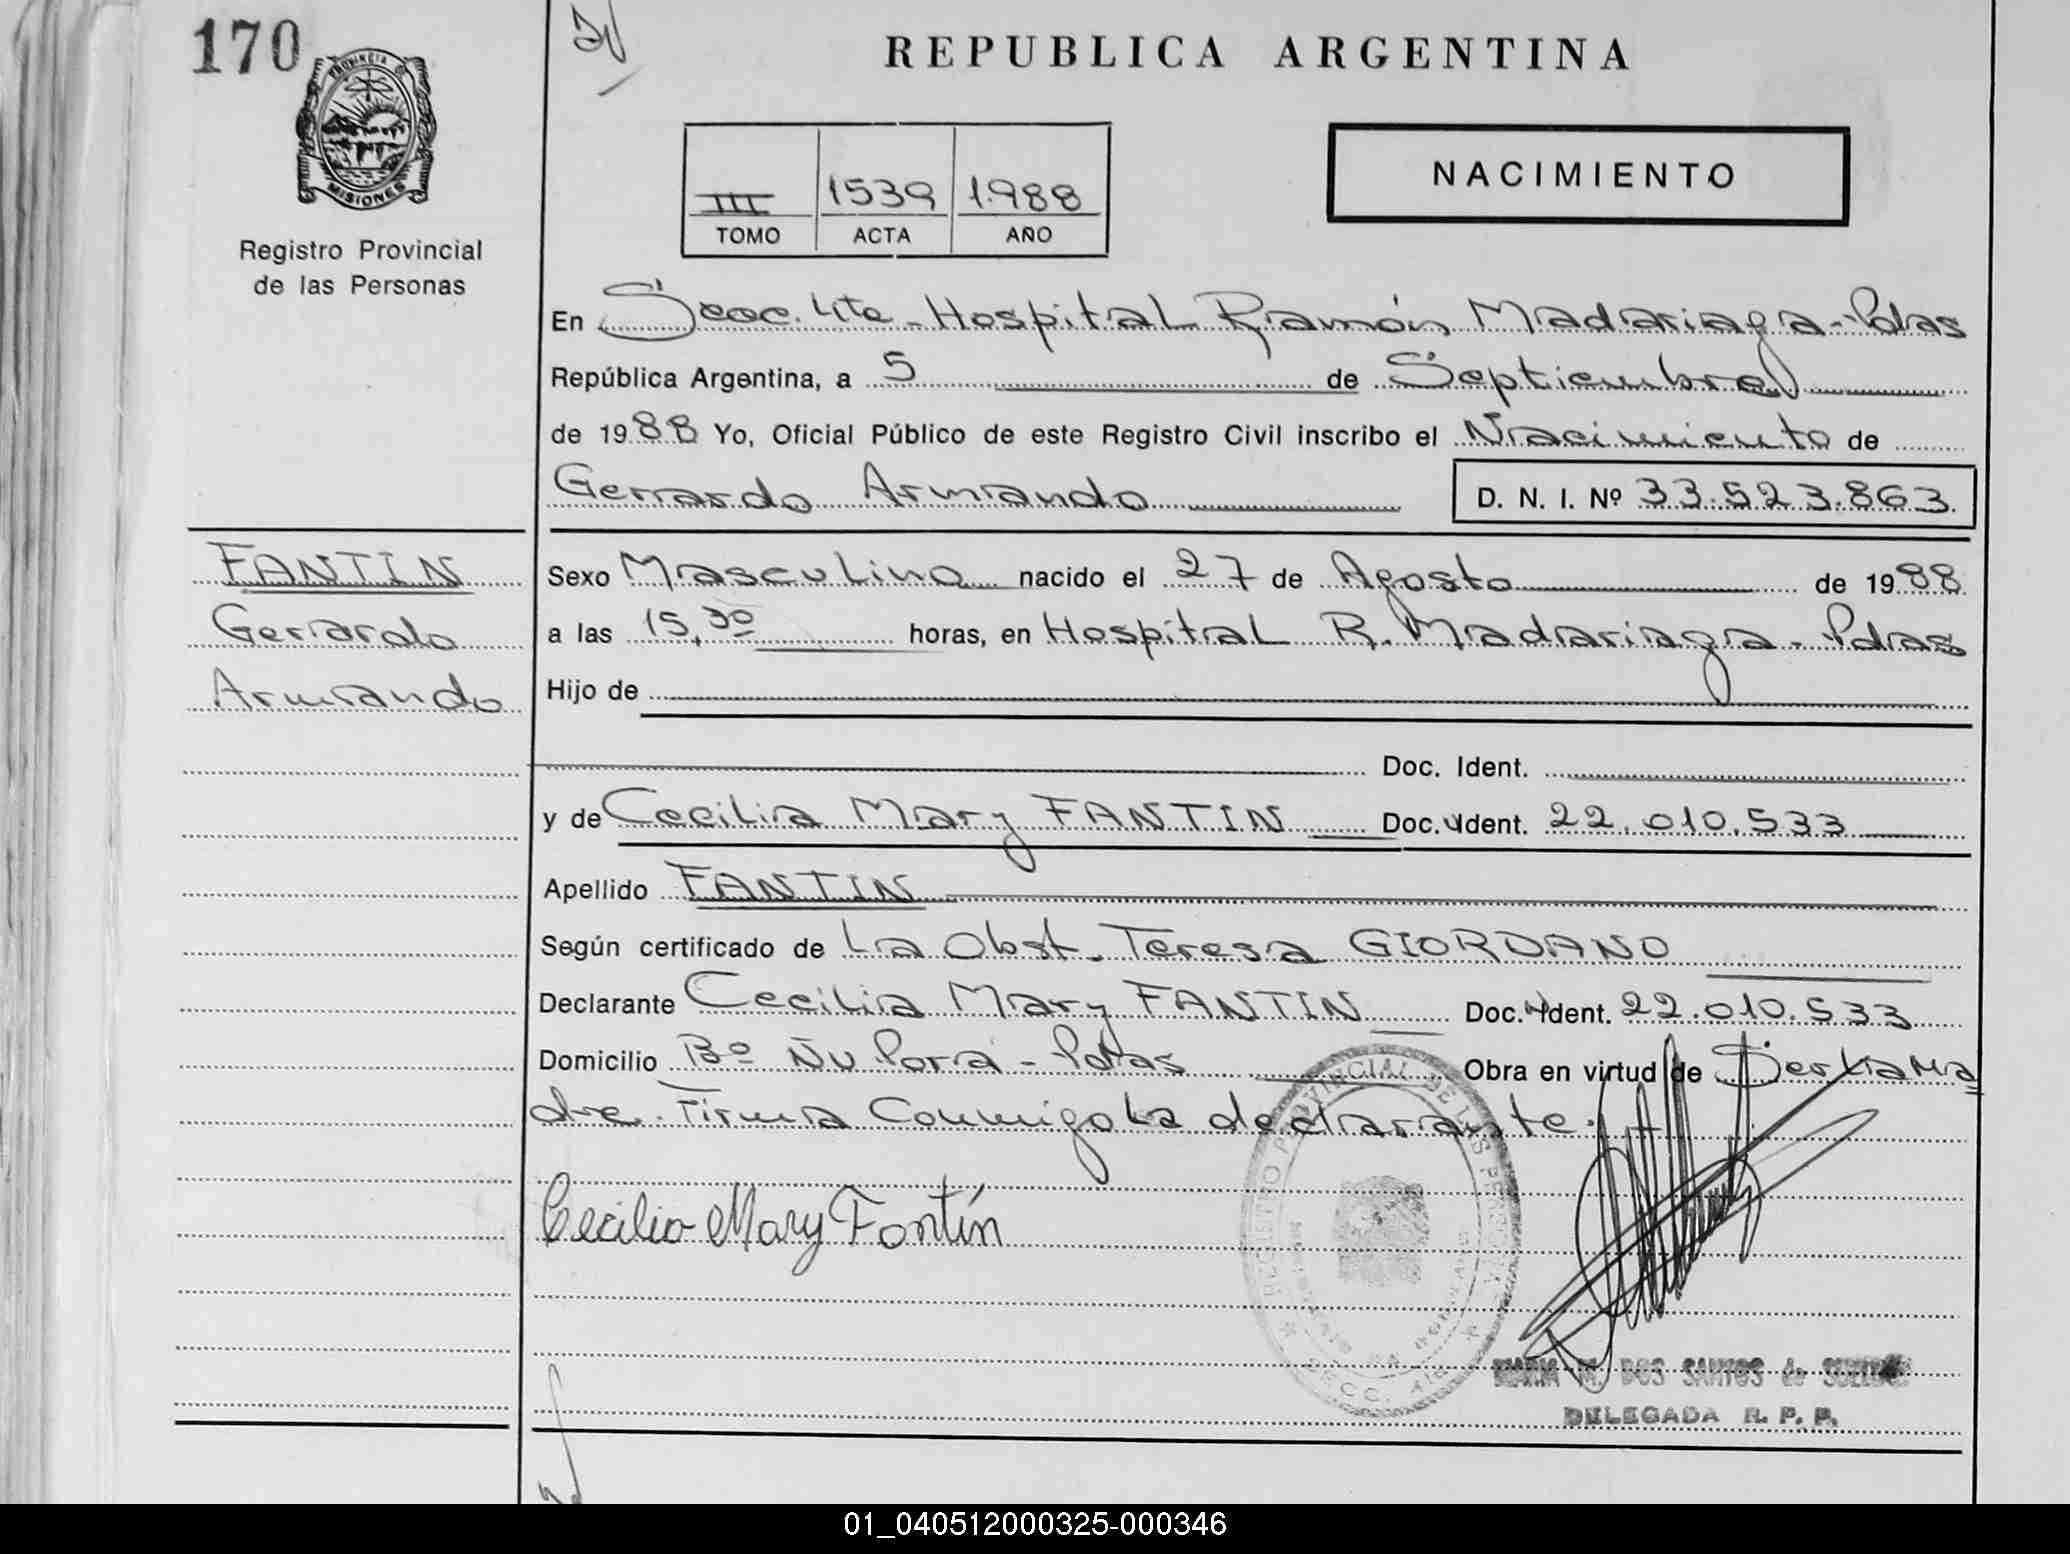 170
REPUBLICA ARGENTINA
PROVINCIA DE
MISIONES
Registro Provincial
de las Personas
III 1539 1.988
TOMO ACTA AÑO
NACIMIENTO
En Secc. 4ta - Hospital Ramón Madariaga - Pdas
República Argentina, a 5 de Septiembre
de 1988 Yo, Oficial Público de este Registro Civil inscribo el Nacimiento de
Gerardo Armando D. N. I. Nº 33.523.863.
FANTIN
Gerardo
Armando
Sexo Masculino nacido el 27 de Agosto de 1988
a las 15,30 horas, en Hospital R. Madariaga - Pdas
Hijo de
Doc. Ident.
y de Cecilia Mary FANTIN Doc. Ident. 22.010.533
Apellido FANTIN
Según certificado de La Obst. Teresa GIORDANO
Declarante Cecilia Mary FANTIN Doc. Ident. 22.010.533
Domicilio Bº Ñu Porá - Pdas Obra en virtud de Ser la Ma
dre. Firma Conmigo la declarante.
Cecilia Mary Fantín
REGISTRO PROVINCIAL DE LAS PERSONAS
SECC. 4ta
MARIA M. DOS SANTOS de
DELEGADA R. P. P.
01_040512000325-000346